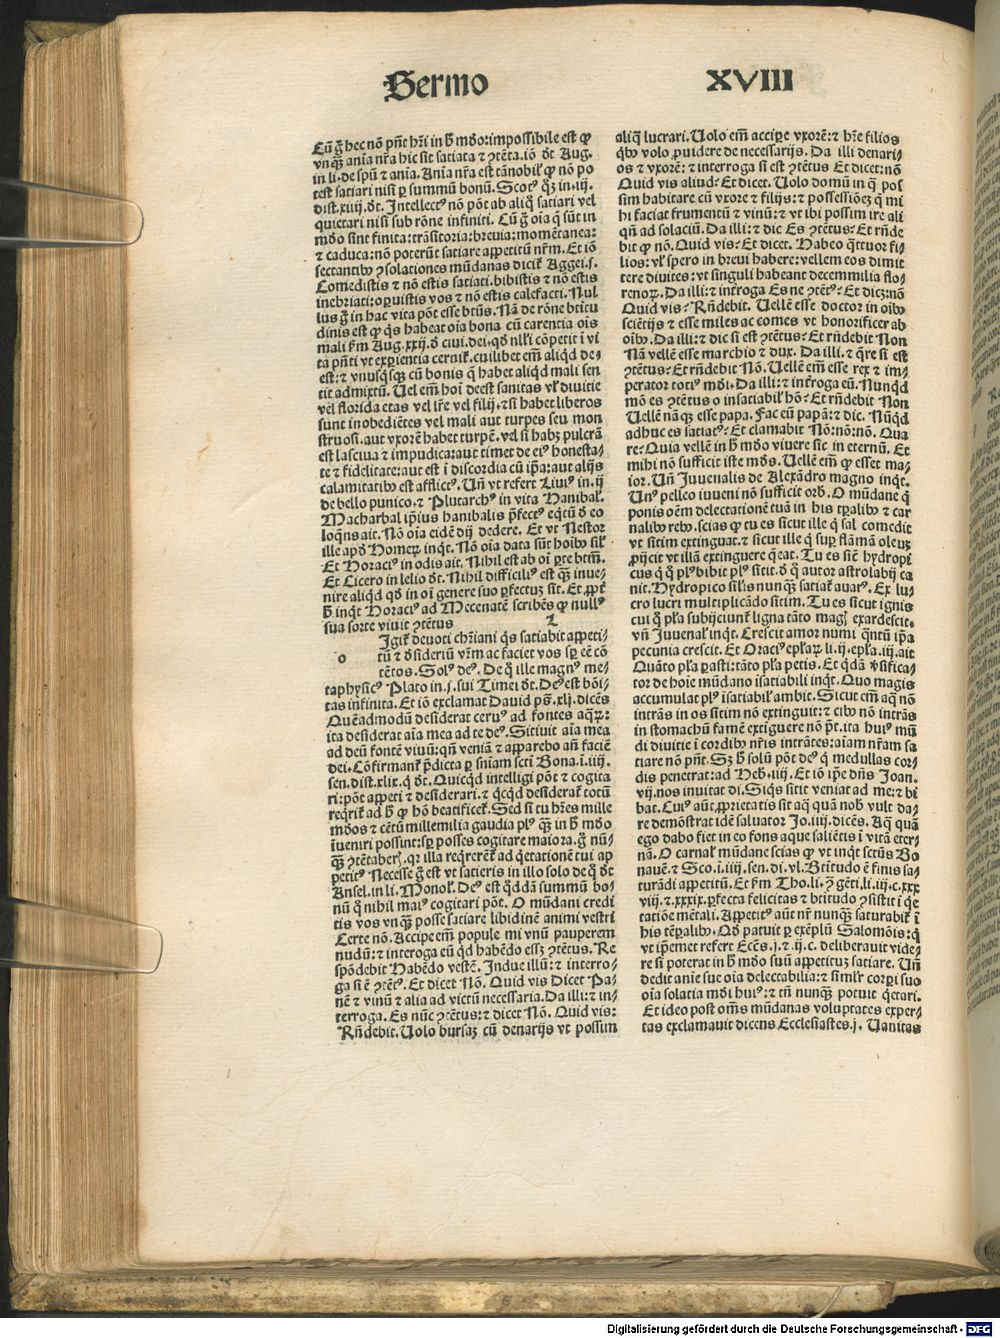 Sermo XVIII
Cū g̃ hec nō pn̄t hr̄i in h̄ mūdo: impossibile est ꝙ
vnq̄ꝫ aīa nr̄a hic sit satiata ⁊ ꝯtēta. iō d̄t Aug.
in li. de spū ⁊ aīa. Aīa nr̄a est tā nobilꝰ ꝙ nō po
test satiari nisi ꝑ summū bonū. Scotꝰ q̄ꝫ in .iij.
dist. xiiij. d̄t. Intellectꝰ nō pōt ab aliq̄ satiari vel
quietari nisi sub rōne infiniti. Cū g̃ oīa q̄ sūt in
mūdo sint finita: trāsitoria: breuia: momētanea:
⁊ caduca: nō poterūt satiare appetitū nr̄m. Et iō
sectantibꝰ ꝯsolationes mūdanas dicit̄ Aggei .j.
Comedistis ⁊ nō estis satiati. bibistis ⁊ nō estis
inebriati: oꝑuistis vos ⁊ nō estis calefacti. Nul
lus g̃ in hac vita pōt esse btūs. Nā de rōne btitu
dinis est ꝙ q̄s habeat oīa bona cū carentia oīs
mali fm Aug. xxij. d̄ ciui. dei. qd̄ nlli cōpetit ī vi
ta pn̄ti vt exꝑientia cernit̄. cuilibet em̄ aliqd̄ de-
est: ⁊ vnusq̄sqꝫ cū bonis q̄ habet aliqd̄ mali sen
tit admixtū. Uel em̄ hoī deest sanitas vl̄ diuitie
vel florida etas vel lr̄e vel filij. ⁊ si habet liberos
sunt inobediētes vel mali aut turpes seu mon
struosi. aut vxorē habet turpē. vel si habꝫ pulcrā
est lasciua ⁊ impudica: aut timet de eiꝰ honesta-
te ⁊ fidelitate: aut est ī discordia cū ip̄a: aut alijs
calamitatibꝰ est afflictꝰ. Un̄ vt refert Liuiꝰ in .ij
de bello punico. ⁊ Plutarchꝰ in vita Hanibal̄.
Macharbal ip̄ius hanibalis p̄fectꝰ eqtū d̄ eo
loq̄ns ait. Nō oīa eidē dij dedere. Et vt Nestor
ille apd̄ Homeꝝ inqt. Nō oīa data sūt hoībꝰ sil̄
Et Horaciꝰ in odis ait. Nihil est ab oī ꝑte btm̄.
Et Cicero in lelio d̄t. Nihil difficiliꝰ est q̄ꝫ inue-
nire aliqd̄ qd̄ in oī genere suo ꝑfectuꝫ sit. Et ꝓpt̄
h̄ inqt Horaciꝰ ad Mecenatē scribēs ꝙ nullꝰ
sua sorte viuit ꝯtētus Z
Igit̄ deuoti chr̄iani q̄s satiabit appeti-
o tū ⁊ d̄sideriū vr̄m ac faciet vos sꝑ eē cō
tētos. Solꝰ deꝰ. De q̄ ille magnꝰ me-
taphysicꝰ Plato in .j. sui Timei d̄t. Deꝰ est bōi-
tas infinita. Et iō exclamat Dauid ps̄. xlj. dicēs
Quēadmodū desiderat ceruꝰ ad fontes aq̄ꝝ:
ita desiderat aīa mea ad te deꝰ. Sitiuit aīa mea
ad deū fontē viuū: qn̄ veniā ⁊ apparebo an̄ faciē
dei. Cōfirmant̄ p̄dicta ꝑ sniam scti Bona. ī .iiij.
sen. dist. xlix. q̄ d̄t. Quicqd̄ intelligi pōt ⁊ cogita
ri: pōt appeti ⁊ desiderari. ⁊ qcqd̄ desiderat̄ totū
reqrit̄ ad h̄ ꝙ hō beatificet̄. Sed si tu hr̄es mille
mūdos ⁊ cētū millemilia gaudia plꝰ q̄ꝫ in h̄ mūdo
īueniri possint: sꝑ posses cogitare maiora. g̃ nū-
q̄ꝫ ꝯtētaberꝭ. qꝛ illa reqrerēt̄ ad qetationē tui ap
petitꝰ Necesse g̃ est vt satieris in illo solo de q̄ d̄t
Ansel. in li. Monol̄. Deꝰ est qd̄dā summū bo-
nū q̄ nihil maiꝰ cogitari pōt. O mūdani credi
tis vos vnq̄ꝫ posse satiare libidinē animi vestri
Certe nō. Accipe em̄ popule mi vnū pauperem
nudū: ⁊ interoga eū qd̄ habēdo essꝫ ꝯtētus. Re
spōdebit Habēdo vestē. Indue illū: ⁊ interro-
ga si ē ꝯtētꝰ. Et dicet Nō. Quid vis Dicet Pa-
nē ⁊ vinū ⁊ alia ad victū necessaria. Da illi: ⁊ in-
terroga. Es nūc ꝯtētus: ⁊ dicet Nō. Quid vis:
Rn̄debit. Uolo bursaꝫ cū denarijs vt possim
aliq̄ lucrari. Uolo em̄ accipe vxorē: ⁊ hr̄e filios
q̄bꝰ volo ꝓuidere de necessarijs. Da illi denari-
os ⁊ vxorē: ⁊ interroga si est ꝯtētus Et dicet: nō
Quid vis aliud: Et dicet. Uolo domū in q̄ pos
sim habitare cū vxore ⁊ filijs: ⁊ possessiōeꝫ q̄ mi
hi faciat frumentū ⁊ vinū: ⁊ vt ibi possim ire ali
qn̄ ad solaciū. Da illi: ⁊ dic Es ꝯtētus: Et rn̄de
bit ꝙ nō. Quid vis: Et dicet. Habeo q̄ttuor fi-
lios: vl̄ spero in breui habere: vellem eos dimit
tere diuites: vt singuli habeant decemmilia flo-
renoꝝ. Da illi: ⁊ int̄roga Es ne ꝯtētꝰ: Et dicꝫ: nō
Quid vis: Rn̄debit. Uellē esse doctor in oībꝰ
sciētijs ⁊ esse miles ac comes vt honorificer ab
oībꝰ. Da illi: ⁊ dic si est ꝯtētus: Et rn̄debit Non
Nā vellē esse marchio ⁊ dux. Da illi. ⁊ q̄re si est
ꝯtētus: Et rn̄debit Nō. Uellē em̄ esse rex ⁊ im-
perator totiꝰ mūdi. Da illi: ⁊ int̄roga eū. Nunqd̄
mō es ꝯtētus o insatiabil̄ hō: Et rn̄debit Non
Uellē nāqꝫ esse papa. Fac eū papā: ⁊ dic. Nūqd̄
adhuc es satiatꝰ: Et clamabit Nō: nō: nō. Qua
re: Quia vellē in h̄ mūdo viuere sic in eternū. Et
mihi nō sufficit iste mūds. Uellē em̄ ꝙ esset ma-
ior. Un̄ Juuenalis de Alexādro magno inqt.
Unꝰ pelleo iuueni nō sufficit orbꝰ. O mūdane q̄
ponis oēm delectationē tuā in his tꝑalibꝰ ⁊ car
nalibꝰ rebꝰ. scias ꝙ tu es sicut ille q̄ sal comedit
vt sitim extinguat. ⁊ sicut ille q̄ suꝑ flāmā oleuꝫ
ꝓijcit vt illā extinguere q̄eat. Tu es sic̄ hydropi
cus q̄ q̄ plꝰ bibit plꝰ sitit. d̄ q̄ autor astrolabij ca
nit. Hydropico sil̄is nunq̄ꝫ satiat̄ auarꝰ. Ex lu-
cro lucri multiplicādo sitim. Tu es sicut ignis
cui q̄ pl̄a subijciunt̄ ligna tāto magꝭ exardescit.
vn̄ Juuenal̄ inqt. Crescit amor numi q̄ntū ip̄a
pecunia crescit. Et Oraciꝰ epl̄aꝝ li. ij. epl̄a. iij. ait
Quāto pl̄a parasti: tāto pl̄a petis. Et qdā v̄sifica-
tor de hoīe mūdano īsatiabili inqt. Quo magis
accumulat plꝰ īsatiabil̄ ambit. Sicut em̄ aq̄ nō
intrās in os sitim nō extinguit: ⁊ cibꝰ nō intrās
in stomachū famē extīguere nō p̄t. ita huiꝰ mū
di diuitie ī cordibꝰ nr̄is intrātes: aīam nr̄am sa
tiare nō pn̄t. Sꝫ h̄ solū pōt deꝰ q̄ medullas cor-
dis penetrat: ad Heb̄. iiij. Et iō ip̄e dn̄s Joan.
vij. nos inuitat dī. Siq̄s sitit veniat ad me: ⁊ bi
bat. Cuiꝰ aūt ꝓprietatis sit aq̄ quā nob̄ vult da-
re demōstrat idē saluator Jo. iiij. dicēs. Aq̄ quā
ego dabo fiet in eo fons aque saliētis ī vitā eter-
nā. O carnal̄ mūdane scias ꝙ vt inqt sctūs Bo
nauē. ⁊ Sco. ī. iiij. sen. di. vl. Btitudo ē finis sa-
turādi appetitū. Et fm Tho. li. ꝯ gēti. li. iij. c. xxx
viij. ⁊ xxxix. ꝑfecta felicitas ⁊ btitudo ꝯsistit ī q̄e
tatiōe mētali. Appetitꝰ aūt nr̄ nunq̄ꝫ saturabit̄ ī
his tēꝑalibꝰ. Qd̄ patuit ꝑ exēplū Salomōis: q̄
vt ip̄emet refert Ecēs. j. ⁊ ij. c. deliberauit vide-
re si poterat in h̄ mūdo suū appetituꝫ satiare. Un̄
dedit anīe sue oīa delectabilia: ⁊ siml̄r corꝑi suo
oīa solatia mūdi huiꝰ: ⁊ tn̄ nunq̄ꝫ potuit q̄etari.
Et ideo post om̄s mūdanas voluptates exper-
tas exclamauit dicens Ecclesiastes .j. Uanitas
Digitalisierung gefördert durch die Deutsche Forschungsgemeinschaft - DFG